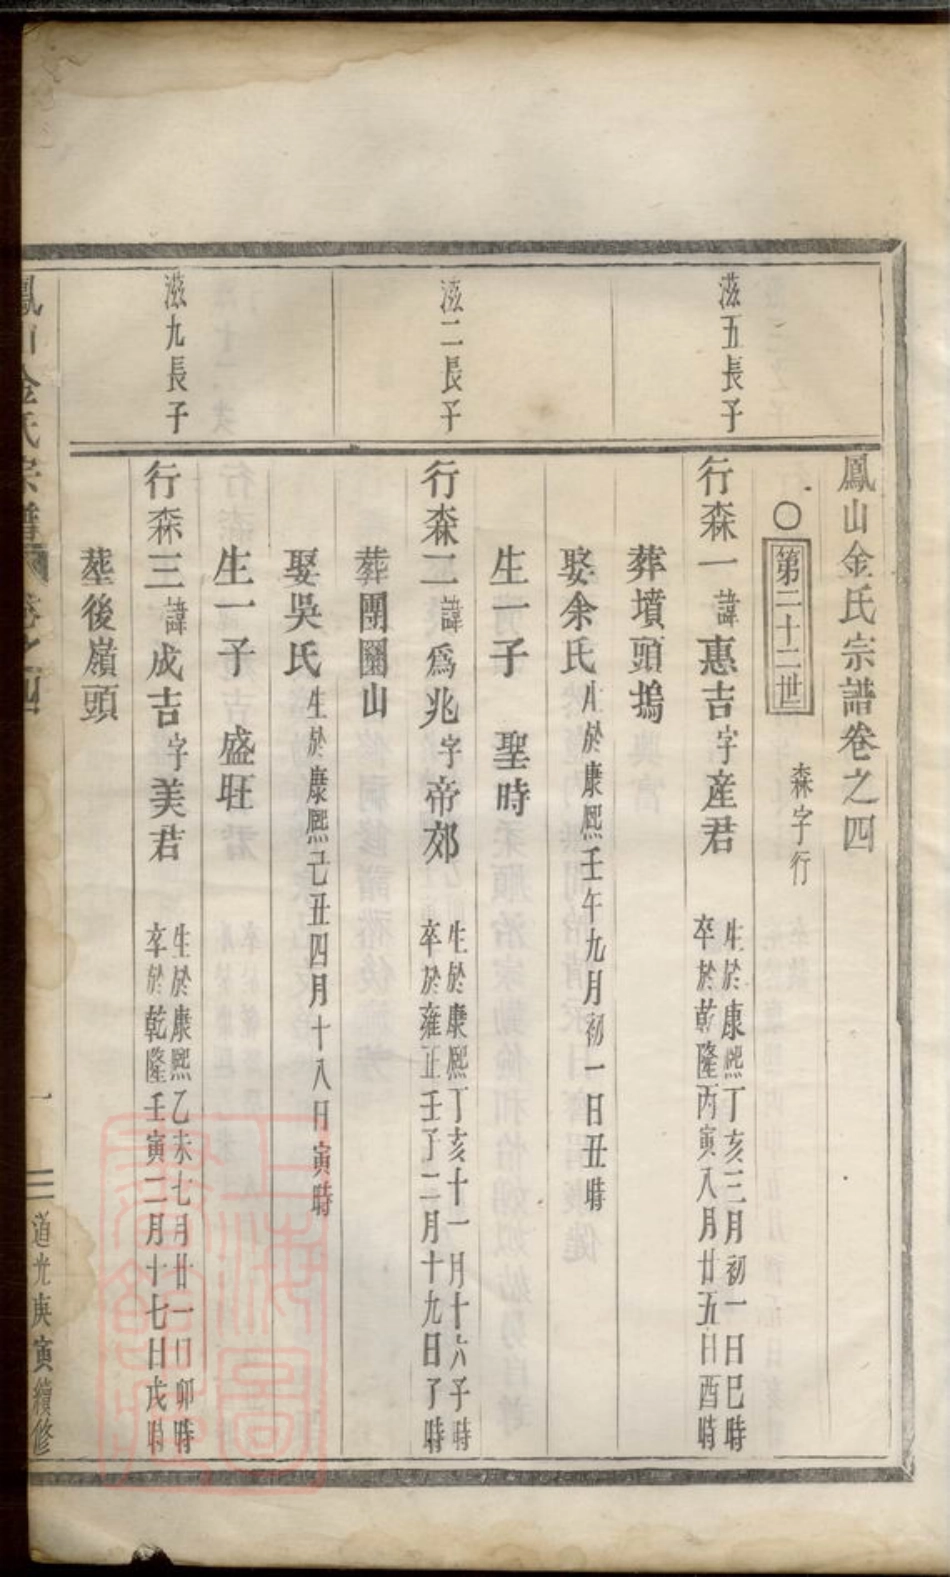 鳳山金氏宗譜卷之四
○第二十二世 森字行
滋五長子
行森一諱惠吉字産君 生於康熙丁亥三月初一日巳時 卒於乾隆丙寅八月廿五日酉時
葬墳頭塢
娶余氏 生於康熙壬午九月初一日丑時
生一子 聖時
滋二長子
行森二諱爲兆字帝郊 生於康熙丁亥十一月十六子時 卒於雍正壬子二月十九日子時
葬團圞山
娶吳氏 生於康熙己丑四月十八日寅時
生一子 盛旺
滋九長子
行森三諱成吉字美君 生於康熙乙未七月廿一日卯時 卒於乾隆壬寅二月十七日戌時
葬後嶺頭
鳳山金氏宗譜 卷之四 一 道光庚寅續修
上海圖書館藏